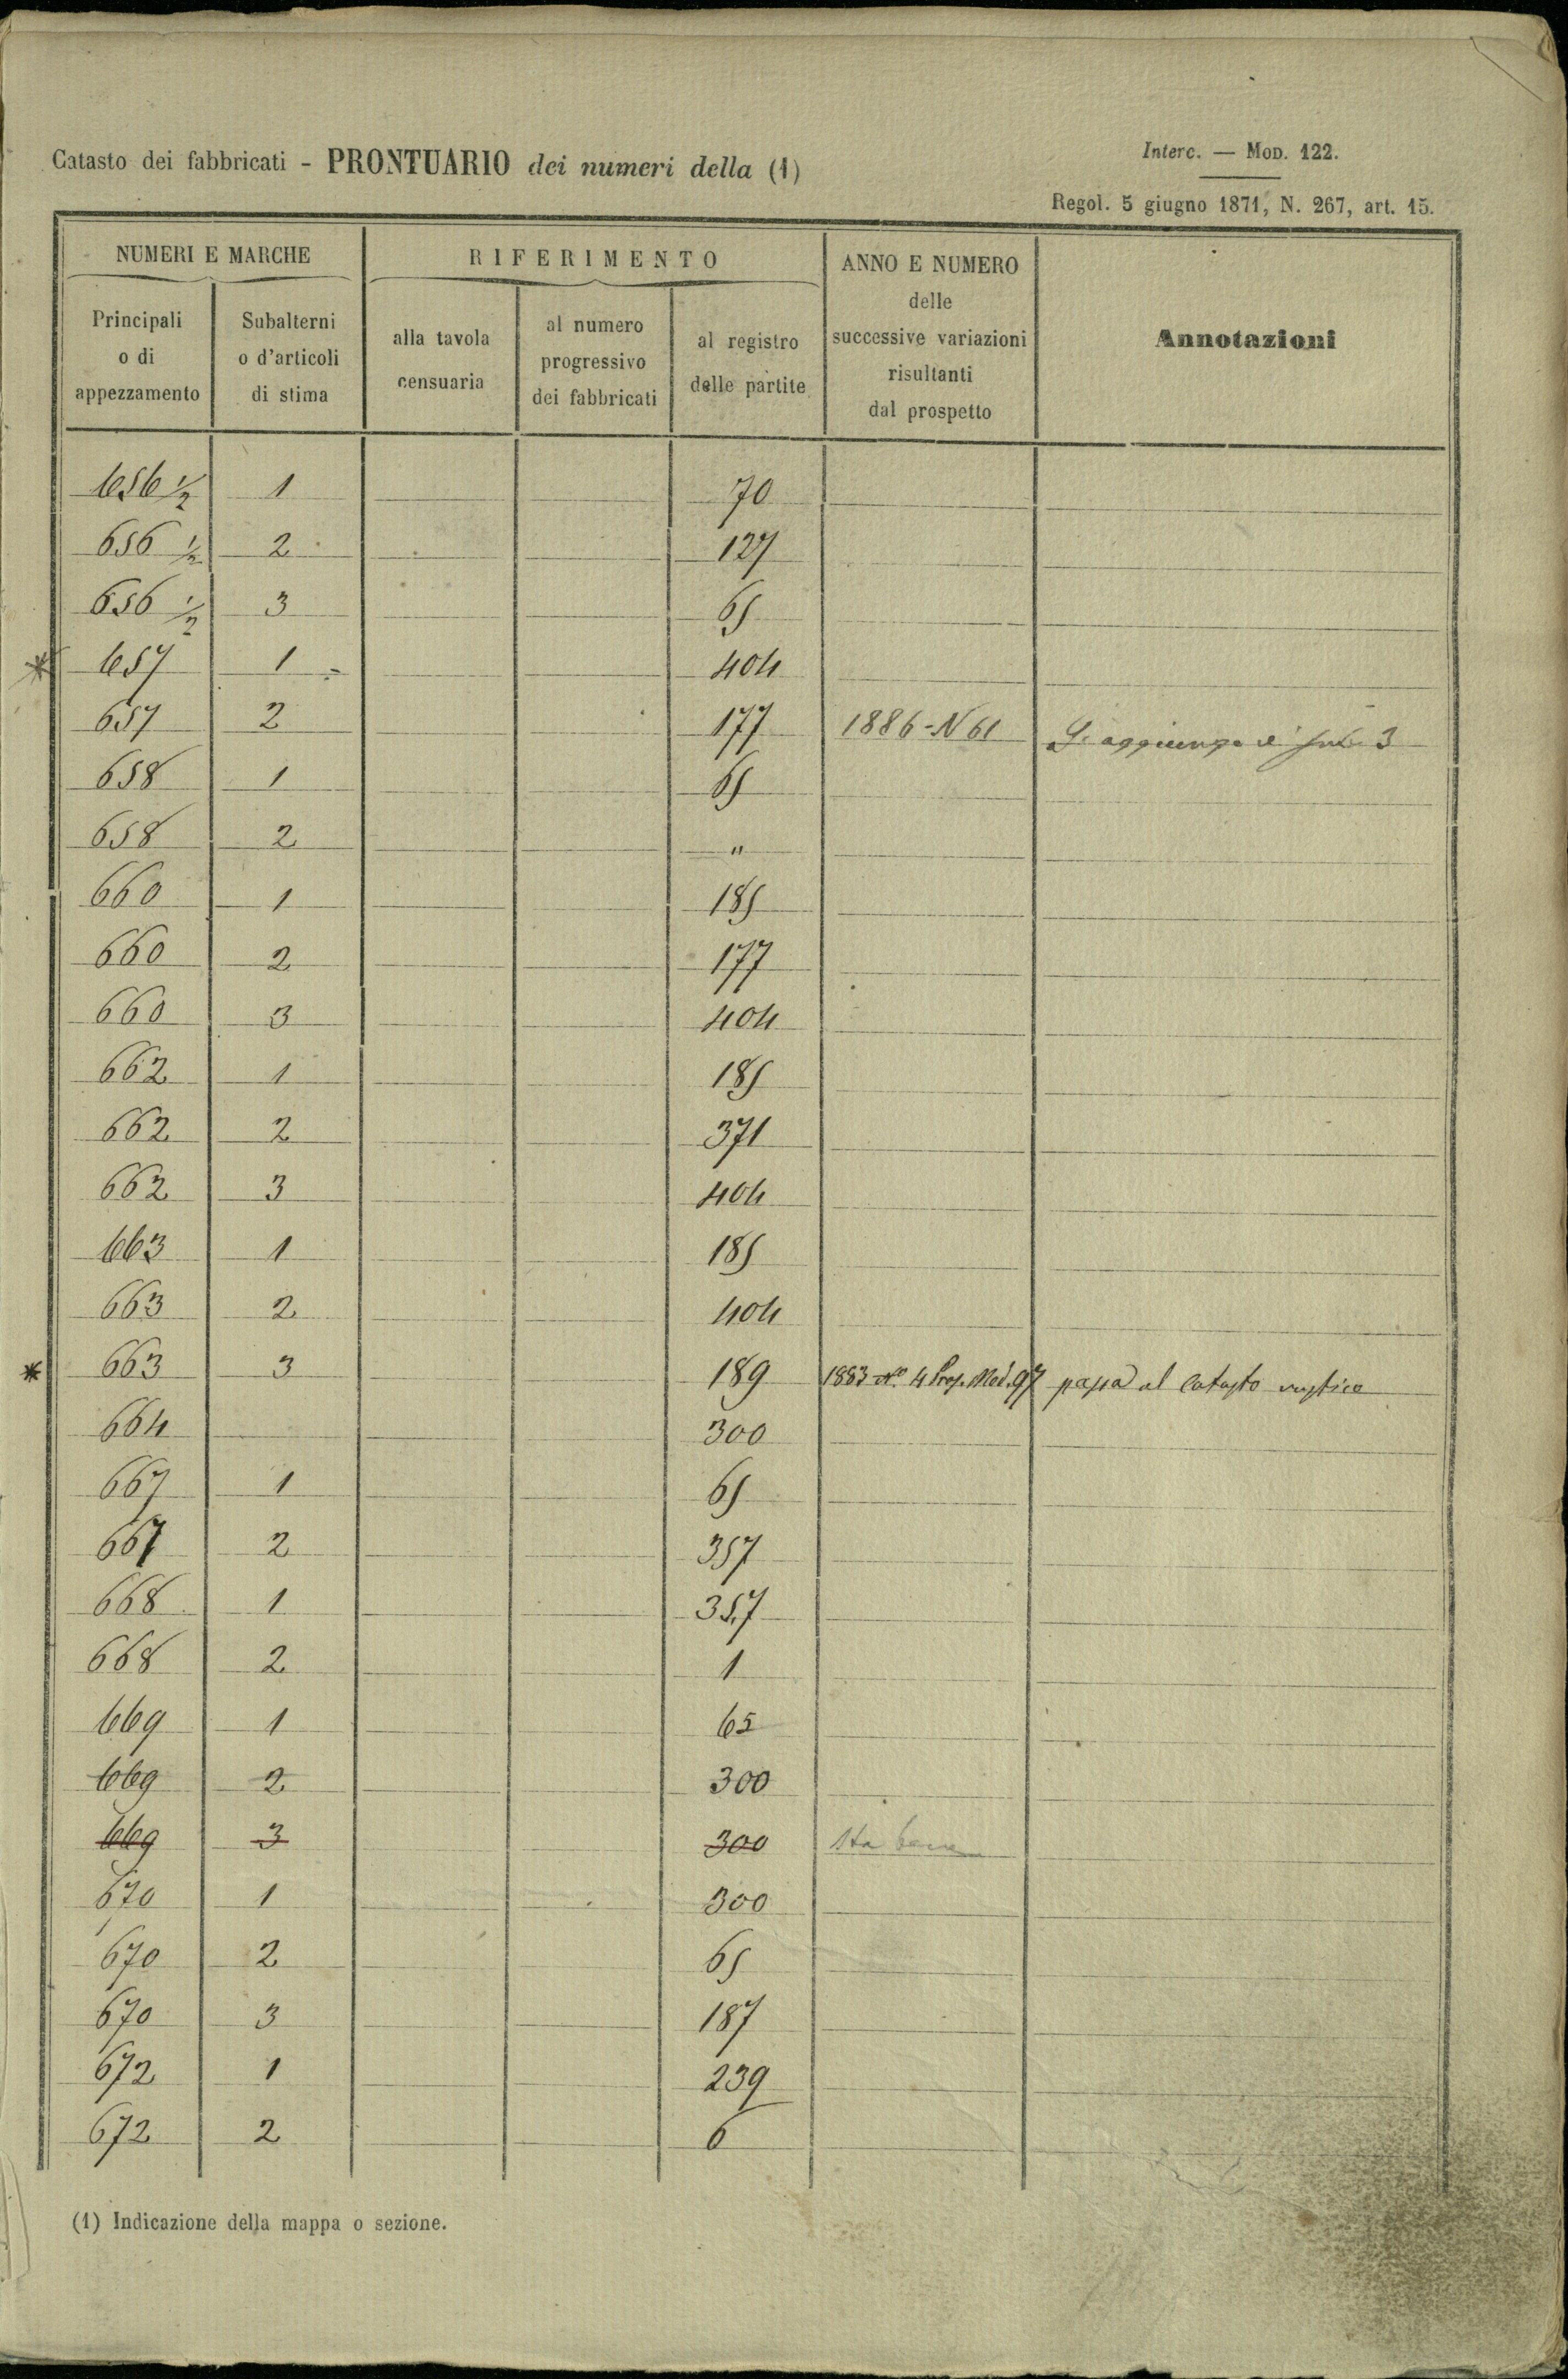 Catasto dei fabbricati - PRONTUARIO dei numeri della (1)
Interc. — Mod. 122.
Regol. 5 giugno 1871, N. 267, art. 15.
NUMERI E MARCHE
RIFERIMENTO
ANNO E NUMERO
delle
successive variazioni
risultanti
dal prospetto
Annotazioni
Principali
o di
appezzamento
Subalterni
o d'articoli
di stima
alla tavola
censuaria
al numero
progressivo
dei fabbricati
al registro
delle partite
656 1/2 1 70
656 1/2 2 127
656 1/2 3 65
* 657 1 404
657 2 177 1886 - N 61 Si aggiunge il sub 3
658 1 65
658 2 "
660 1 185
660 2 177
660 3 404
662 1 185
662 2 371
662 3 404
663 1 185
663 2 404
* 663 3 189 1883 No. 4 Prosp. Mod. 97 passa al Catasto rustico
664 300
667 1 65
667 2 357
668 1 357
668 2 1
669 1 65
669 2 300
669 3 300 Sta bene
670 1 300
670 2 65
670 3 187
672 1 239
672 2 6
(1) Indicazione della mappa o sezione.